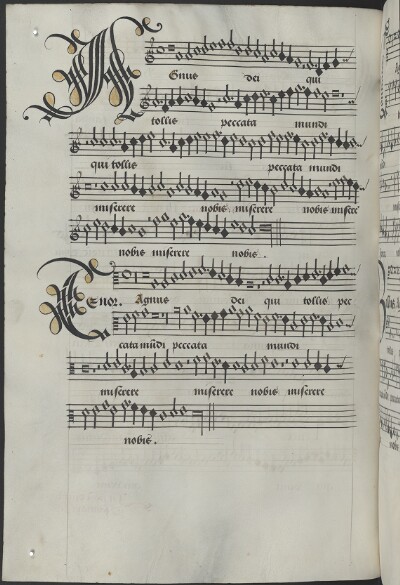 Agnus dei qui
tollis peccata mundi
qui tollis peccata mundi
miserere nobis miserere nobis misere
nobis miserere nobis.
Tenor. Agnus dei qui tollis pec
cata mūdi peccata mundi
miserere miserere nobis miserere
nobis.